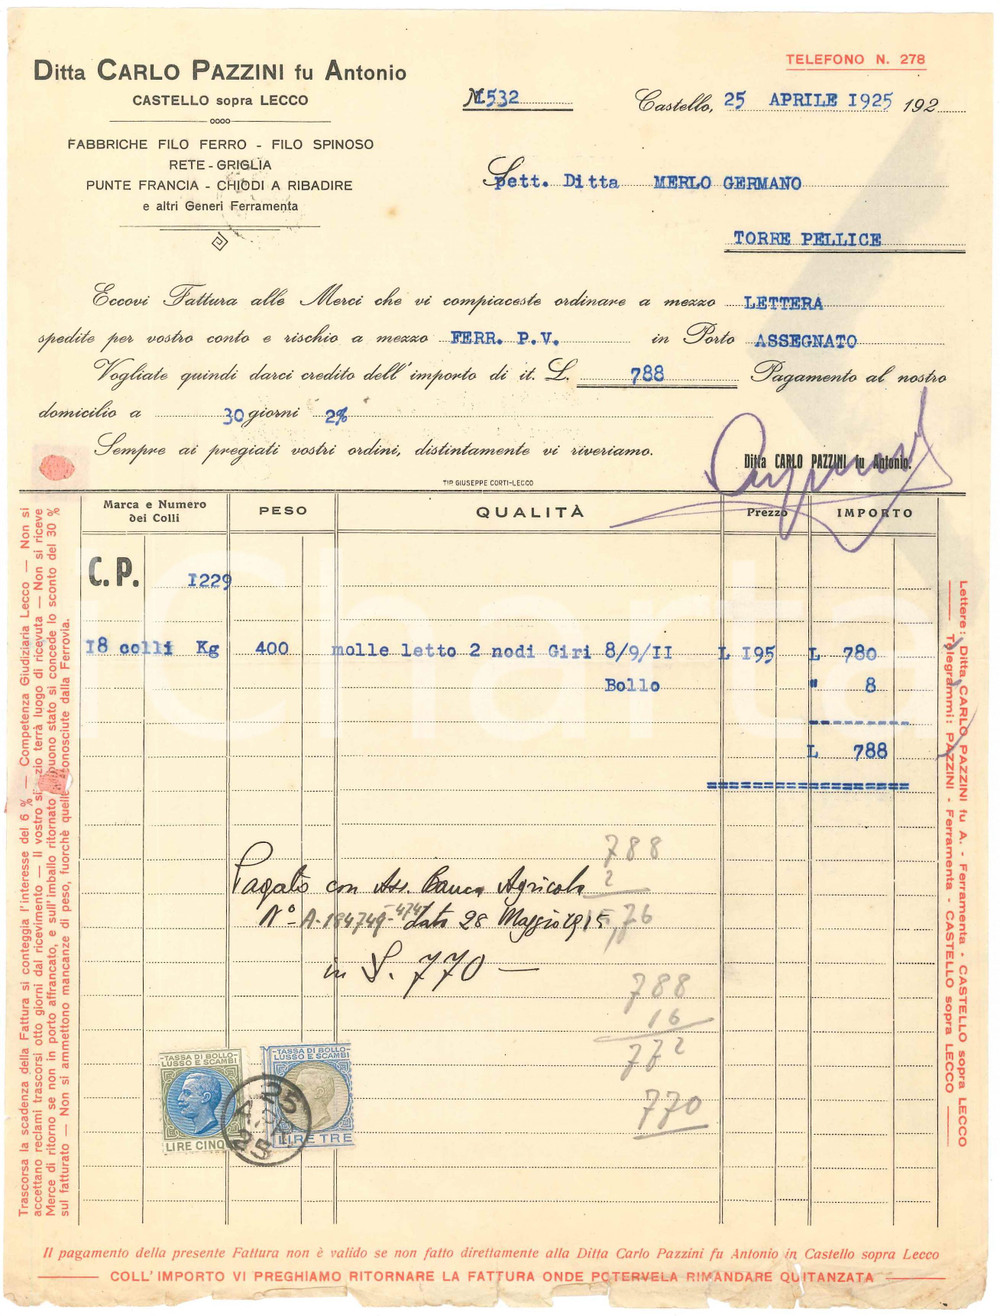 Ditta CARLO PAZZINI fu Antonio
CASTELLO sopra LECCO
FABBRICHE FILO FERRO - FILO SPINOSO
RETE - GRIGLIA
PUNTE FRANCIA - CHIODI A RIBADIRE
e altri Generi Ferramenta
TELEFONO N. 278
N. 1532
Castello, 25 APRILE 1925 192
Spett. Ditta MERLO GERMANO
TORRE PELLICE
Eccovi Fattura alle Merci che vi compiaceste ordinare a mezzo LETTERA
spedite per vostro conto e rischio a mezzo FERR. P.V. in Porto ASSEGNATO
Vogliate quindi darci credito dell'importo di it. L. 788 Pagamento al nostro
domicilio a 30 giorni 2%
Sempre ai pregiati vostri ordini, distintamente vi riveriamo.
Ditta CARLO PAZZINI fu Antonio.
TIP. GIUSEPPE CORTI-LECCO
Marca e Numero dei Colli PESO QUALITÀ Prezzo IMPORTO
C.P. I229
I8 colli Kg 400 molle letto 2 nodi Giri 8/9/II L I95 L 780
Bollo " 8
L 788
iCharta
Pagato con Ass. Banca Agricola
N° A-184749-474 dato 28 Maggio 1915
in L. 770 —
788
2
15,76
788
16
772
770
TASSA DI BOLLO-
LUSSO E SCAMBI
LIRE CINQ
TASSA DI BOLLO-
LUSSO E SCAMBI
LIRE TRE
25
25
Trascorsa la scadenza della Fattura si conteggia l'interesse del 6 % — Competenza Giudiziaria Lecco — Non si
accettano reclami trascorsi otto giorni dal ricevimento — Il vostro si zio terrà luogo di ricevuta — Non si riceve
Merce di ritorno se non in porto affrancato, e sull'imballo ritornato buono stato si concede lo sconto del 30 %
sul fatturato — Non si ammettono mancanze di peso, fuorchè quelle conosciute dalla Ferrovia.
Lettere: Ditta CARLO PAZZINI fu A. - Ferramenta - CASTELLO sopra LECCO
Telegrammi: PAZZINI - Ferramenta - CASTELLO sopra LECCO
Il pagamento della presente Fattura non è valido se non fatto direttamente alla Ditta Carlo Pazzini fu Antonio in Castello sopra Lecco
COLL'IMPORTO VI PREGHIAMO RITORNARE LA FATTURA ONDE POTERVELA RIMANDARE QUITANZATA